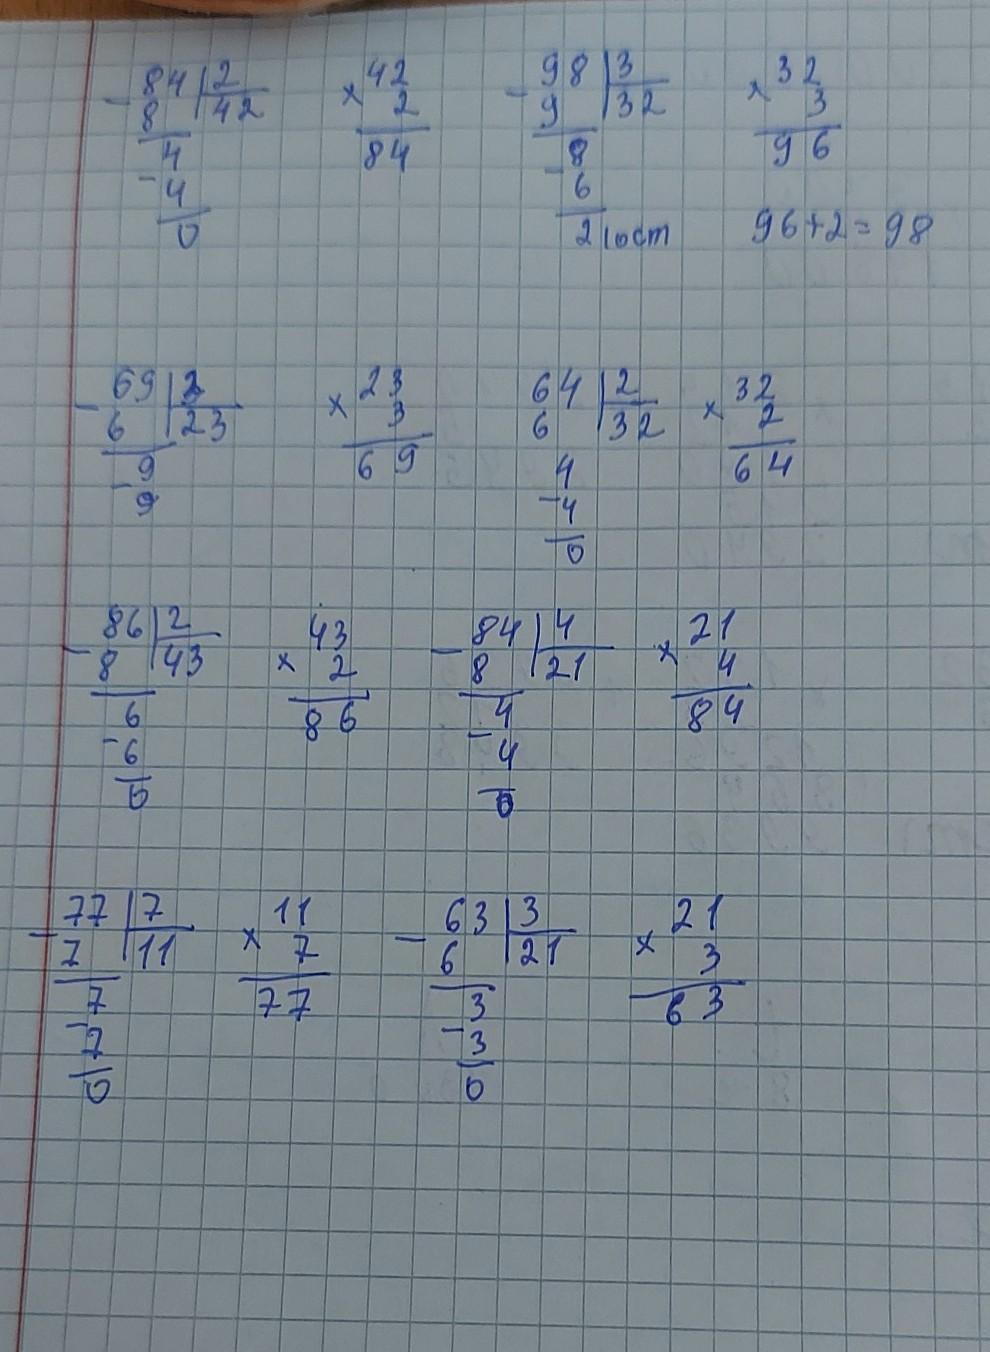 - 84 | 2 × 42 - 98 | 3 × 32
8 42 2 9 32 3
4 84 8 96
- 4 - 6
0 2 | ост 96+2=98
- 69 | × 23 64 | 2 × 32
6 23 3 6 32 2
- 9 69 4 64
9 - 4
0
- 86 | 2 × 43 - 84 | 4 × 21
8 43 2 8 21 4
6 86 4 84
- 6 - 4
0 0
- 77 | 7 × 11 - 63 | 3 × 21
7 11 7 6 21 3
7 77 3 63
- 7 - 3
0 0